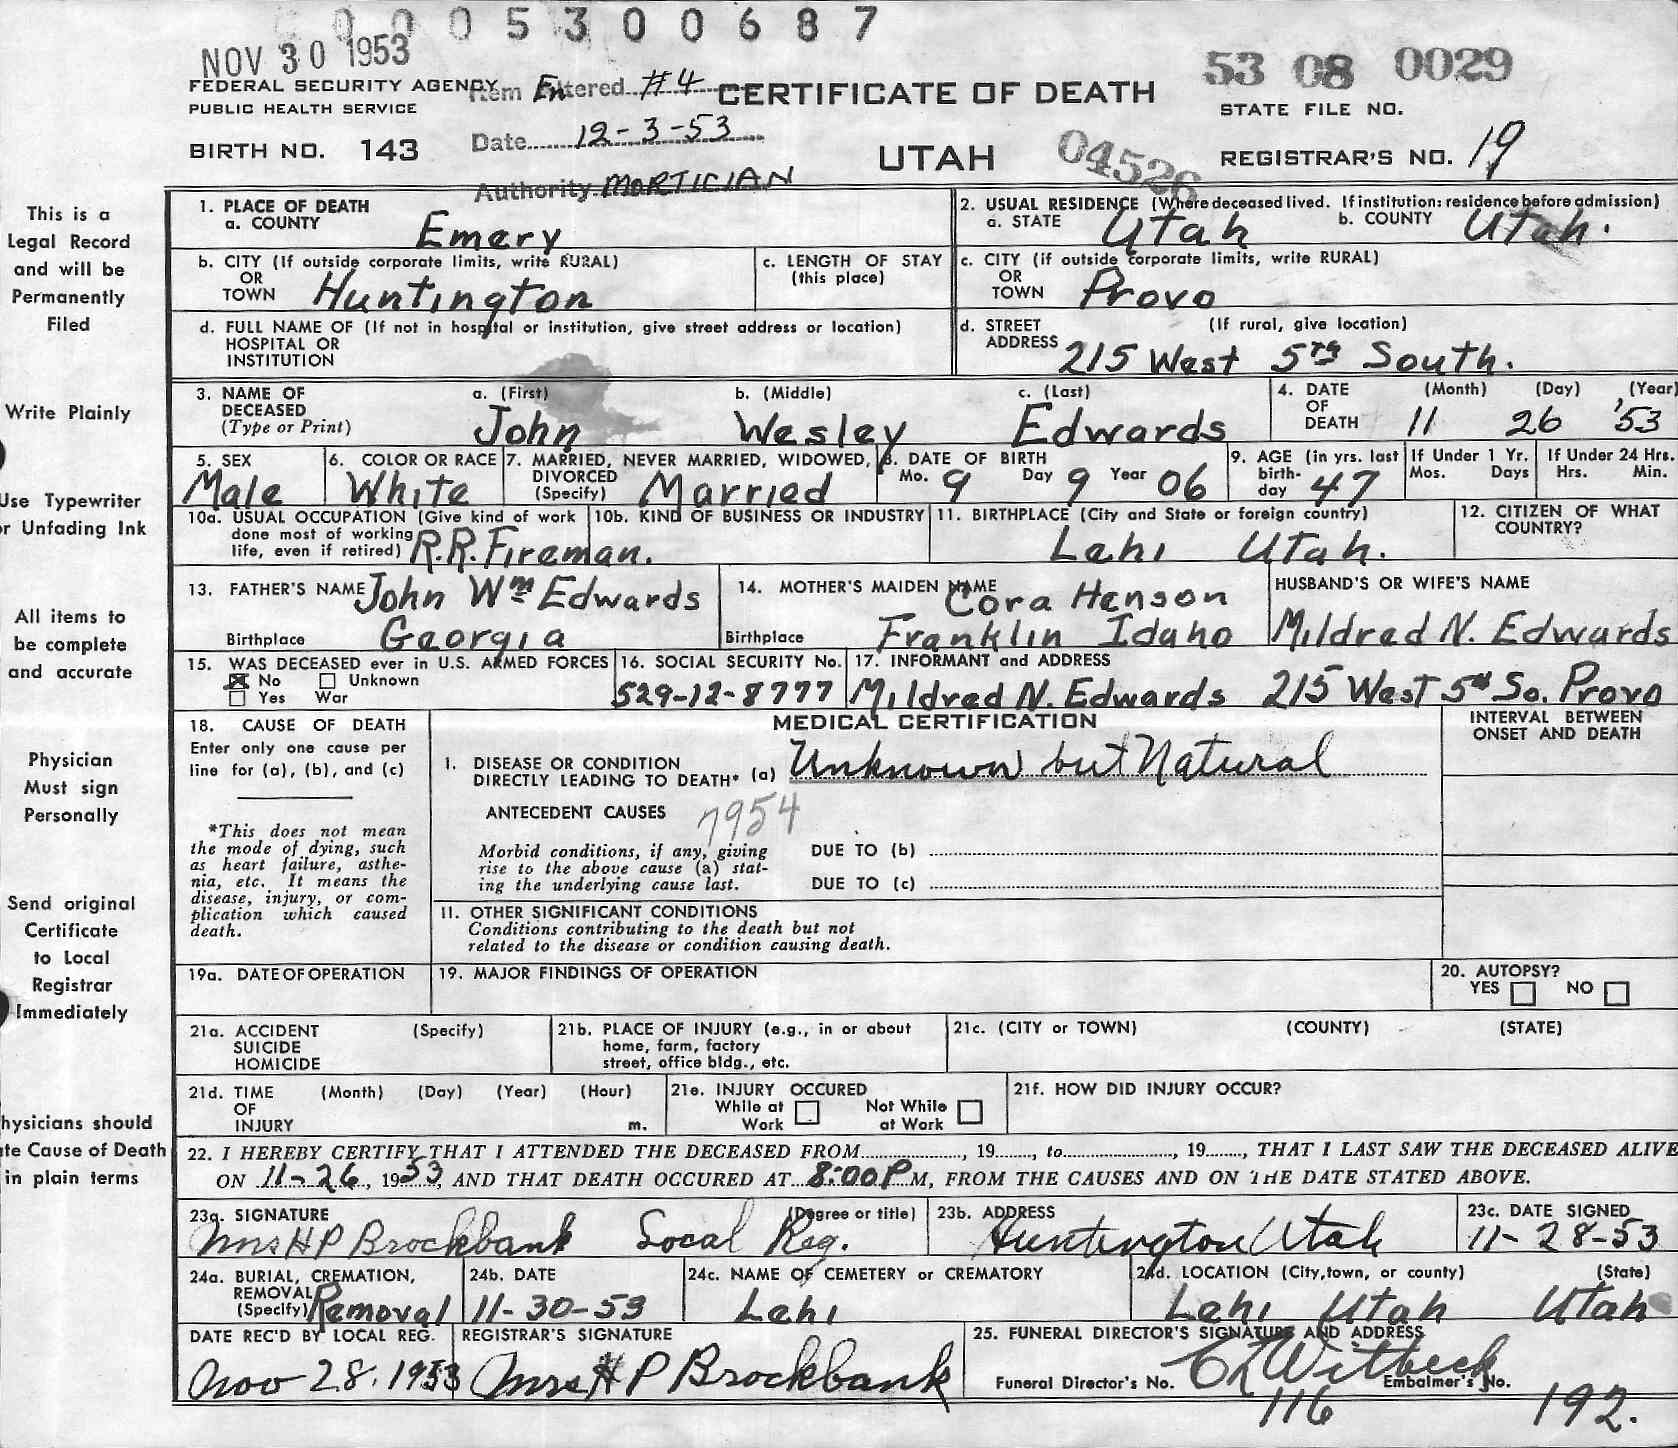 0005300687
NOV 30 1953
53 08 0029
FEDERAL SECURITY AGENCY
PUBLIC HEALTH SERVICE
Item Entered #4
CERTIFICATE OF DEATH
STATE FILE NO.
BIRTH NO. 143
Date 12-3-53
UTAH
04526
REGISTRAR'S NO. 19
Authority MORTICIAN
This is a
Legal Record
and will be
Permanently
Filed
1. PLACE OF DEATH
a. COUNTY Emery
2. USUAL RESIDENCE (Where deceased lived. If institution: residence before admission)
a. STATE Utah b. COUNTY Utah.
b. CITY (If outside corporate limits, write RURAL)
OR
TOWN Huntington
c. LENGTH OF STAY
(this place)
c. CITY (if outside corporate limits, write RURAL)
OR
TOWN Provo
d. FULL NAME OF (If not in hospital or institution, give street address or location)
HOSPITAL OR
INSTITUTION
d. STREET (If rural, give location)
ADDRESS 215 West 5th South.
Write Plainly
3. NAME OF DECEASED
(Type or Print)
a. (First) b. (Middle) c. (Last)
John Wesley Edwards
4. DATE OF DEATH (Month) (Day) (Year)
11 26 '53
Use Typewriter
or Unfading Ink
5. SEX
Male
6. COLOR OR RACE
White
7. MARRIED, NEVER MARRIED, WIDOWED,
DIVORCED
(Specify) Married
8. DATE OF BIRTH
Mo. 9 Day 9 Year 06
9. AGE (in yrs. last
birth-
day 47
If Under 1 Yr.
Mos. Days
If Under 24 Hrs.
Hrs. Min.
10a. USUAL OCCUPATION (Give kind of work
done most of working
life, even if retired) R.R. Fireman.
10b. KIND OF BUSINESS OR INDUSTRY
11. BIRTHPLACE (City and State or foreign country)
Lehi Utah.
12. CITIZEN OF WHAT
COUNTRY?
All items to
be complete
and accurate
13. FATHER'S NAME John Wm Edwards
Birthplace Georgia
14. MOTHER'S MAIDEN NAME Cora Henson
Birthplace Franklin Idaho
HUSBAND'S OR WIFE'S NAME
Mildred N. Edwards
15. WAS DECEASED ever in U.S. ARMED FORCES
No Unknown
Yes War
16. SOCIAL SECURITY No.
529-12-8777
17. INFORMANT and ADDRESS
Mildred N. Edwards 215 West 5th So. Provo
Physician
Must sign
Personally
18. CAUSE OF DEATH
Enter only one cause per
line for (a), (b), and (c)
*This does not mean
the mode of dying, such
as heart failure, asthe-
nia, etc. It means the
disease, injury, or com-
plication which caused
death.
MEDICAL CERTIFICATION
INTERVAL BETWEEN
ONSET AND DEATH
I. DISEASE OR CONDITION
DIRECTLY LEADING TO DEATH* (a) Unknown but Natural
ANTECEDENT CAUSES 7954
Morbid conditions, if any, giving
rise to the above cause (a) stat-
ing the underlying cause last.
DUE TO (b)
DUE TO (c)
11. OTHER SIGNIFICANT CONDITIONS
Conditions contributing to the death but not
related to the disease or condition causing death.
Send original
Certificate
to Local
Registrar
Immediately
19a. DATE OF OPERATION
19. MAJOR FINDINGS OF OPERATION
20. AUTOPSY?
YES NO
21a. ACCIDENT (Specify)
SUICIDE
HOMICIDE
21b. PLACE OF INJURY (e.g., in or about
home, farm, factory
street, office bldg., etc.
21c. (CITY or TOWN) (COUNTY) (STATE)
21d. TIME (Month) (Day) (Year) (Hour)
OF
INJURY m.
21e. INJURY OCCURED
While at Work
Not While at Work
21f. HOW DID INJURY OCCUR?
hysicians should
te Cause of Death
in plain terms
22. I HEREBY CERTIFY THAT I ATTENDED THE DECEASED FROM, 19, to, 19, THAT I LAST SAW THE DECEASED ALIVE
ON 11-26, 1953, AND THAT DEATH OCCURED AT 8:00 P M, FROM THE CAUSES AND ON THE DATE STATED ABOVE.
23a. SIGNATURE (Degree or title)
Mrs H P Brockbank Local Reg.
23b. ADDRESS
Huntington Utah
23c. DATE SIGNED
11-28-53
24a. BURIAL, CREMATION,
REMOVAL
(Specify) Removal
24b. DATE
11-30-53
24c. NAME OF CEMETERY or CREMATORY
Lehi
24d. LOCATION (City, town, or county) (State)
Lehi Utah Utah
DATE REC'D BY LOCAL REG.
Nov 28. 1953
REGISTRAR'S SIGNATURE
Mrs H P Brockbank
25. FUNERAL DIRECTOR'S SIGNATURE AND ADDRESS
Witbeck
Funeral Director's No. 116
Embalmer's No. 192.